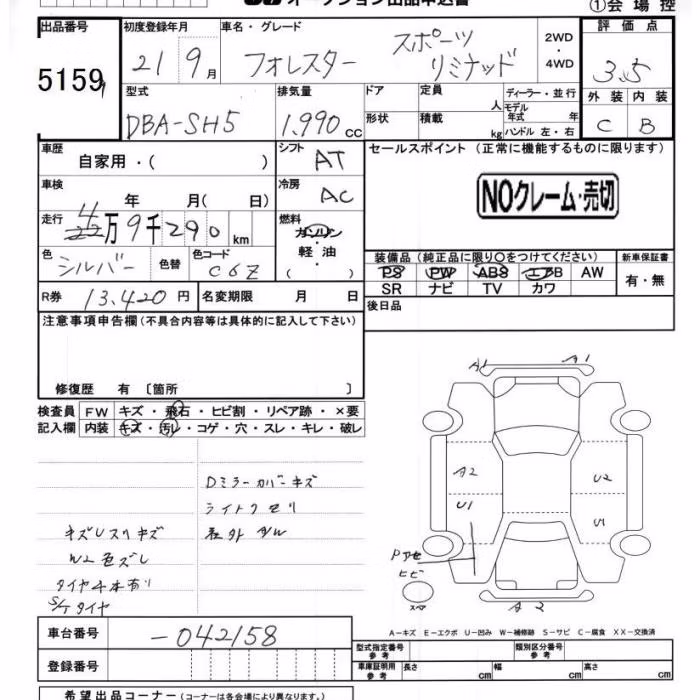 オークション出品申込書
①会場控
出品番号 5159
初度登録年月 21 9月
車名・グレード フォレスター スポーツ リミテッド
2WD ・ 4WD
評価点 3.5
型式 DBA-SH5
排気量 1,990 CC
ドア
定員 人
ディーラー・並行
モデル年式 年式
形状
積載 kg
ハンドル 左・右
外装 C
内装 B
車歴 自家用・( )
シフト AT
セールスポイント (正常に機能するものに限ります)
NOクレーム・売切
車検 年 月( 日)
冷房 AC
走行 4万9千290 km
燃料 ガソリン・軽・油 ( )
色 シルバー
色替
色コード C6Z
装備品 (純正品に限り○をつけてください)
新車保証書
PS PW ABS エアB AW
SR ナビ TV カワ
有・無
R券 13,420 円
名変期限 月 日
後日品
注意事項申告欄 (不具合内容等は具体的に記入して下さい)
修復歴 有 〔箇所 〕
検査員記入欄
FW キズ・飛石・ヒビ割・リペア跡・×要
内装 キズ・汚レ・コゲ・穴・スレ・キレ・破レ
Dミラーカバーキズ
ライトクモリ
キズUスリキズ
W2色ズレ
タイヤ4本有り
S/Tタイヤ
A1 A1
A2 U2
U1 U1
ヒビ
スペア
A2
A-キズ E-エクボ U-凹み W-補修跡 S-サビ C-腐食 XX-交換済
車台番号 -042158
型式指定番号 参考
類別区分番号 参考
登録番号
車庫証明用 参考
長さ cm
幅 cm
高さ cm
希望出品コーナー (コーナーは各会場により異なります。)